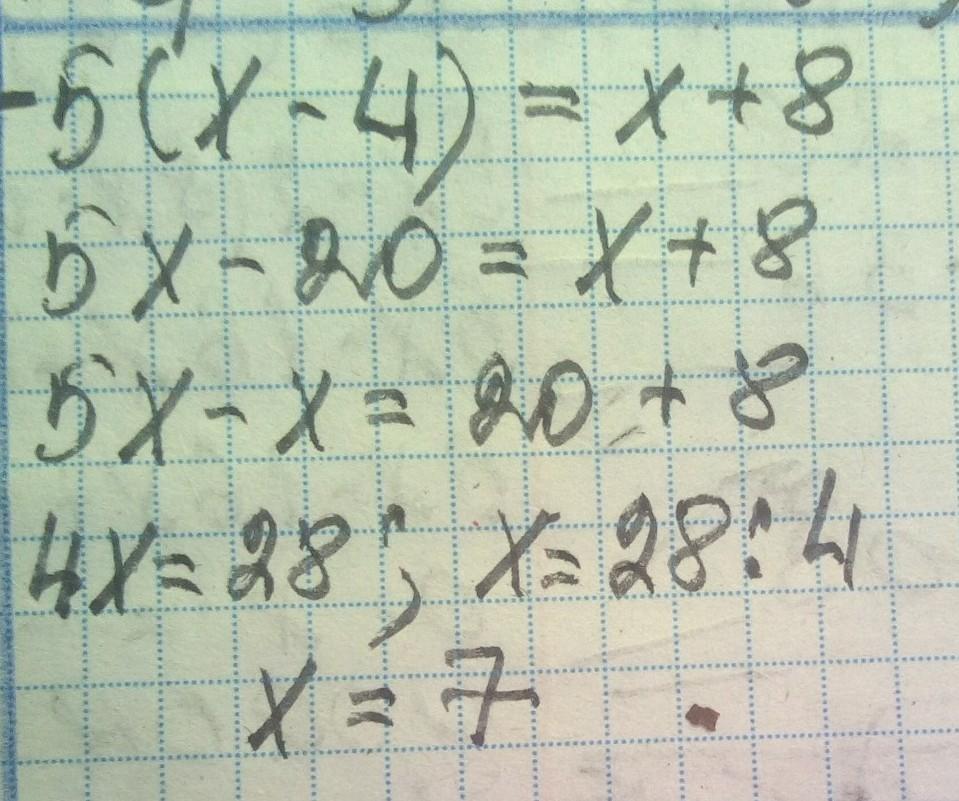 -5(x-4)=x+8
5x-20=x+8
5x-x=20+8
4x=28; x=28:4
x=7